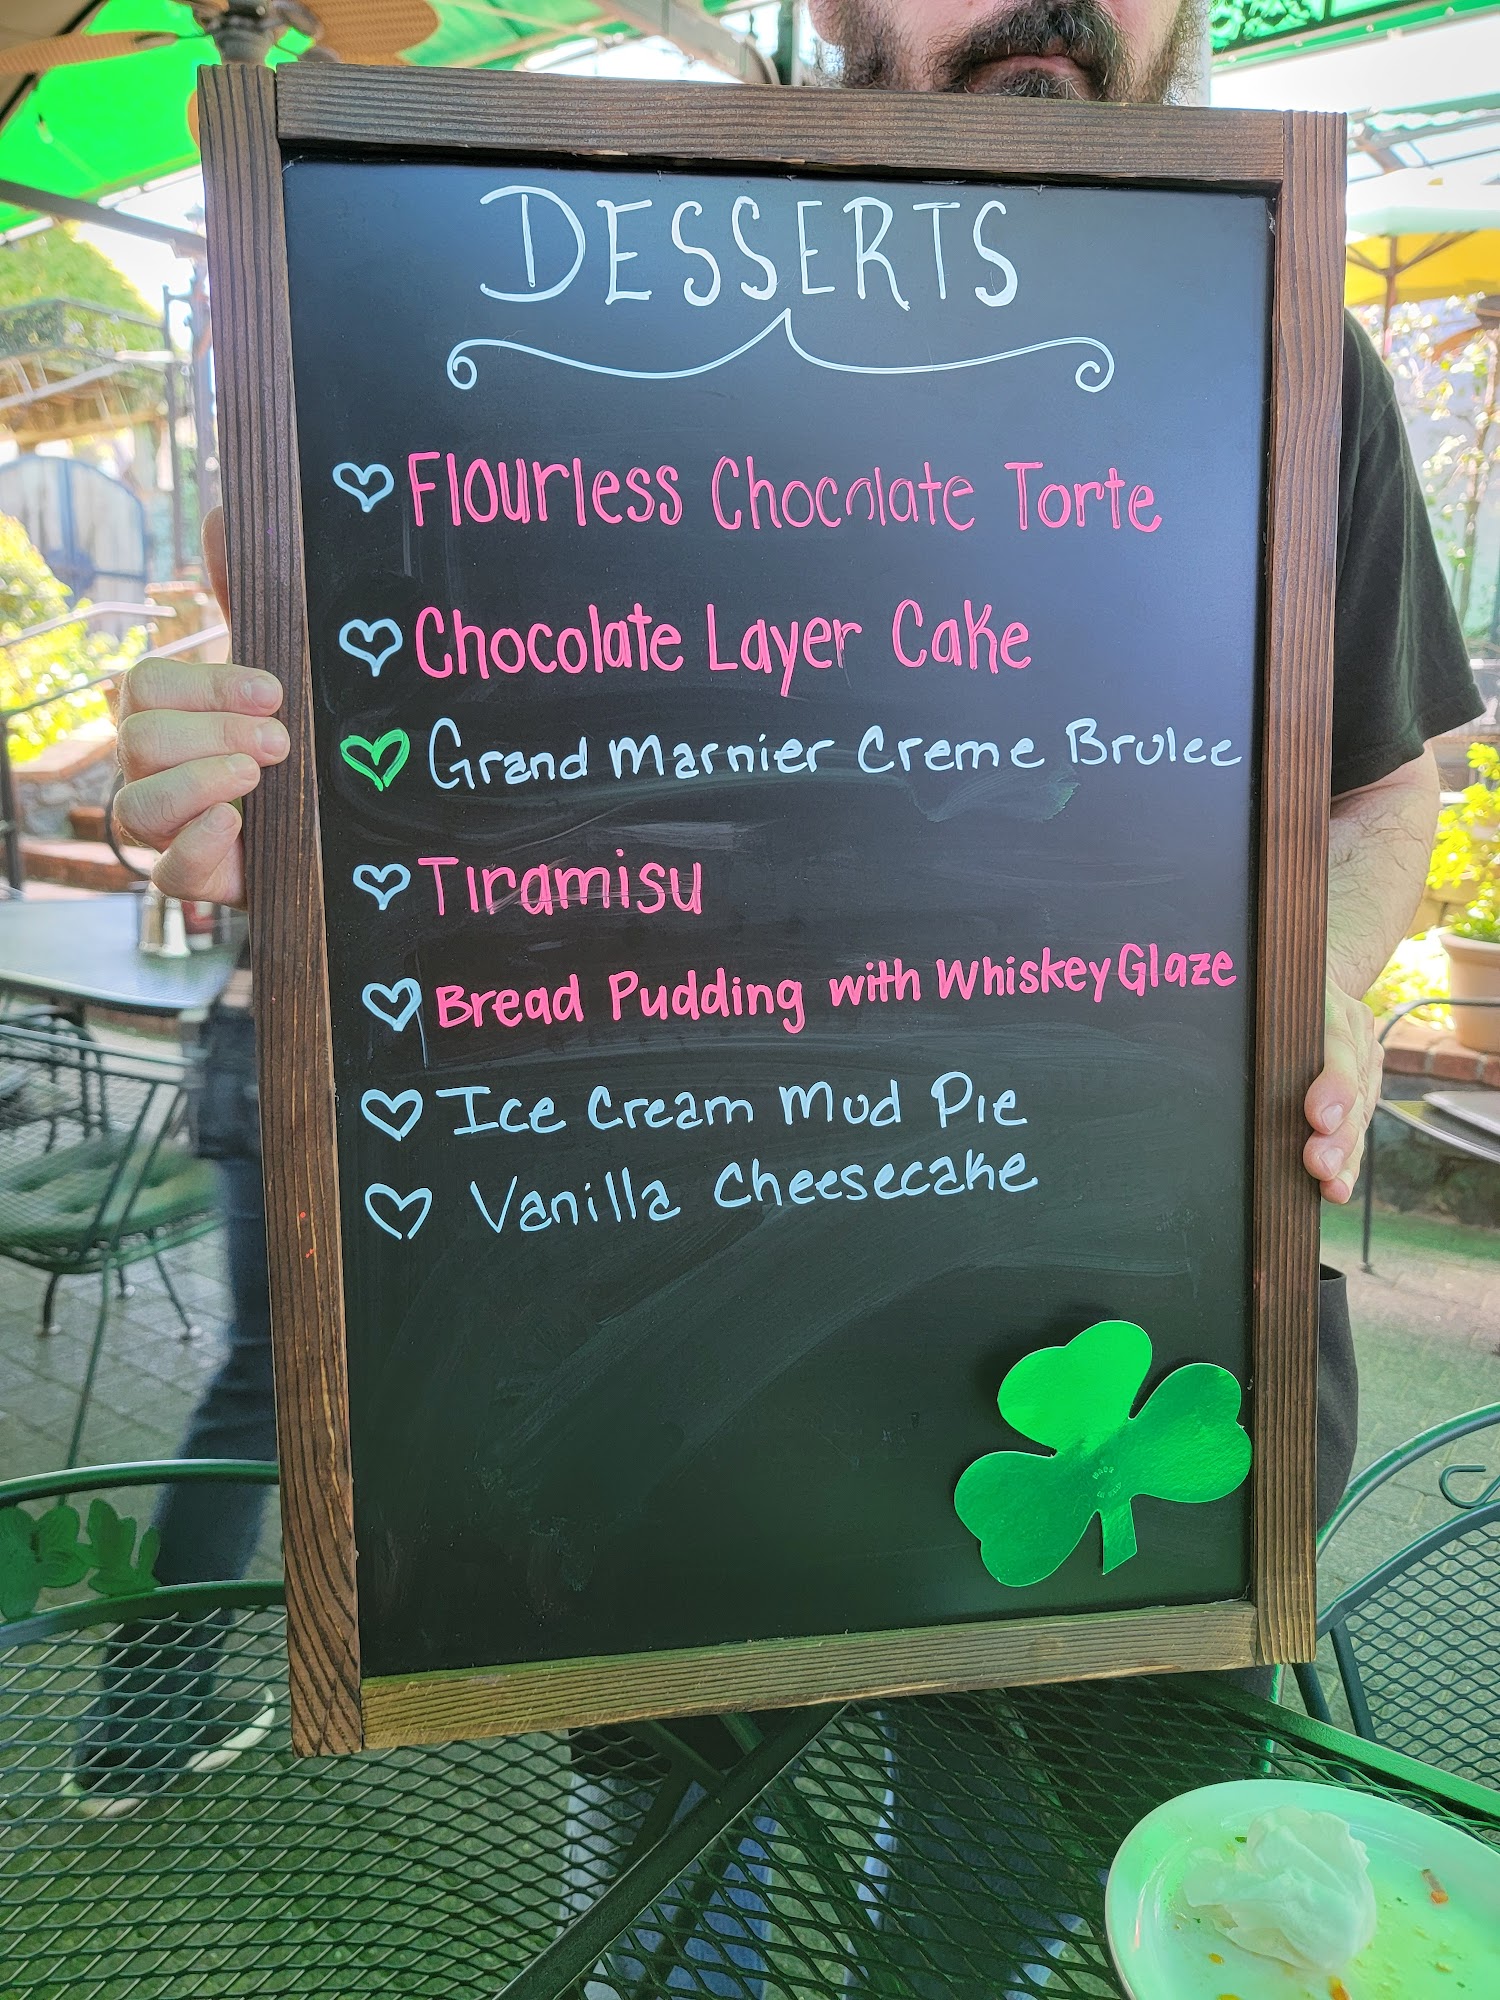 DESSERTS
Flourless Chocolate Torte
Chocolate Layer Cake
Grand Marnier Creme Brulee
Tiramisu
Bread Pudding with Whiskey Glaze
Ice Cream Mud Pie
Vanilla Cheesecake